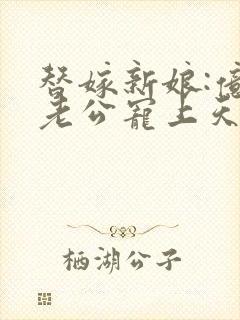 替嫁新娘:億
老公寵上天
栖湖公子